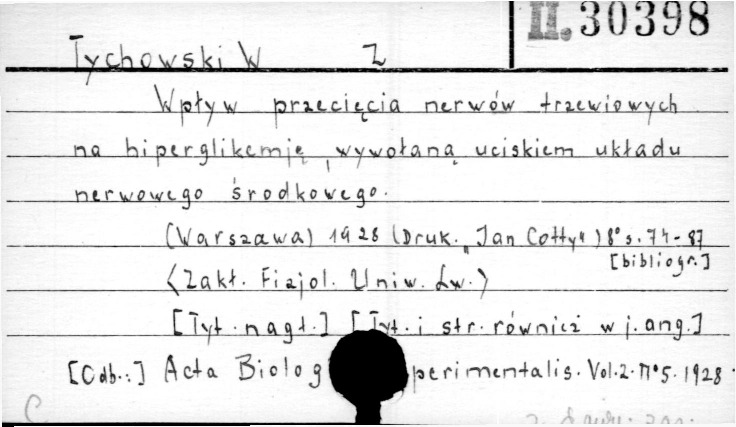 II. 30398
Tychowski W Z
Wpływ przecięcia nerwów trzewiowych
na hiperglikemję, wywołaną uciskiem układu
nerwowego środkowego.
(Warszawa) 1928 (Druk. „Jan Cotty") 8° s. 74-87
[bibliogr.]
<Zakł. Fizjol. Uniw. Lw.>
[Tyt. nagł.] [Tyt. i str. również w j. ang.]
[Odb.:] Acta Biolog perimentalis. Vol. 2. N° 5. 1928.
C